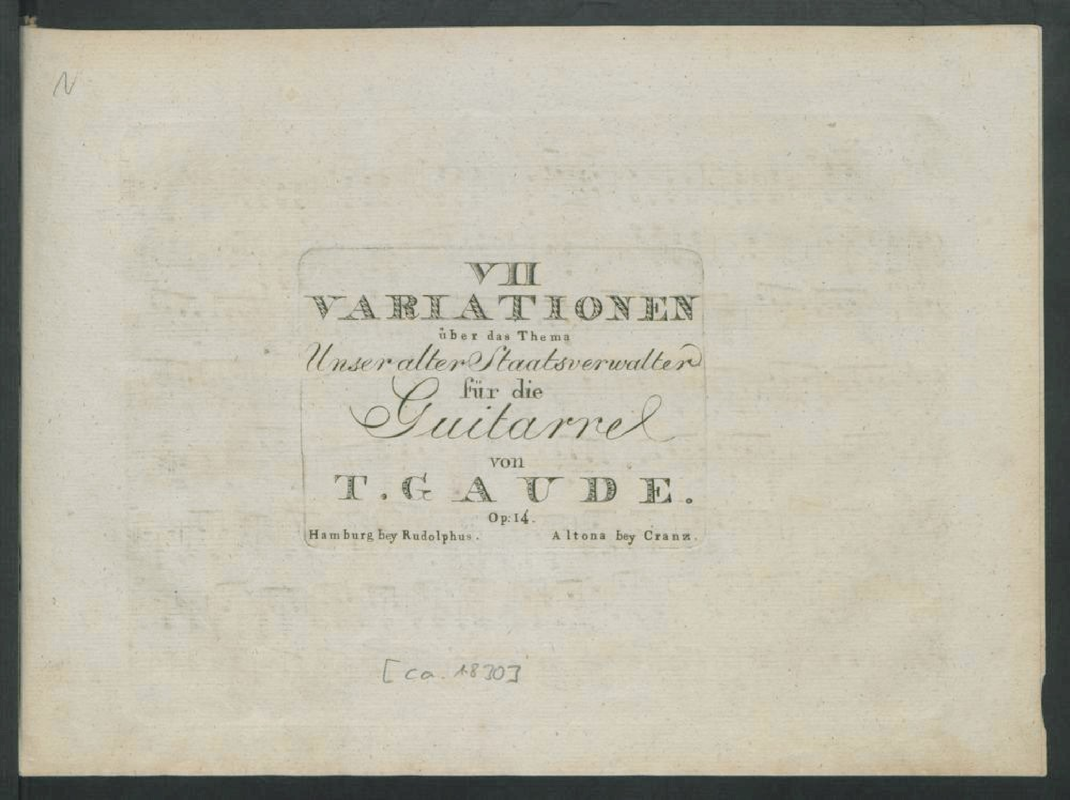 N
VII
VARIATIONEN
über das Thema
Unser alter Staatsverwalter
für die
Guitarre
von
T. GAUDE.
Op: 14.
Hamburg bey Rudolphus. Altona bey Cranz.
[ca. 1830]